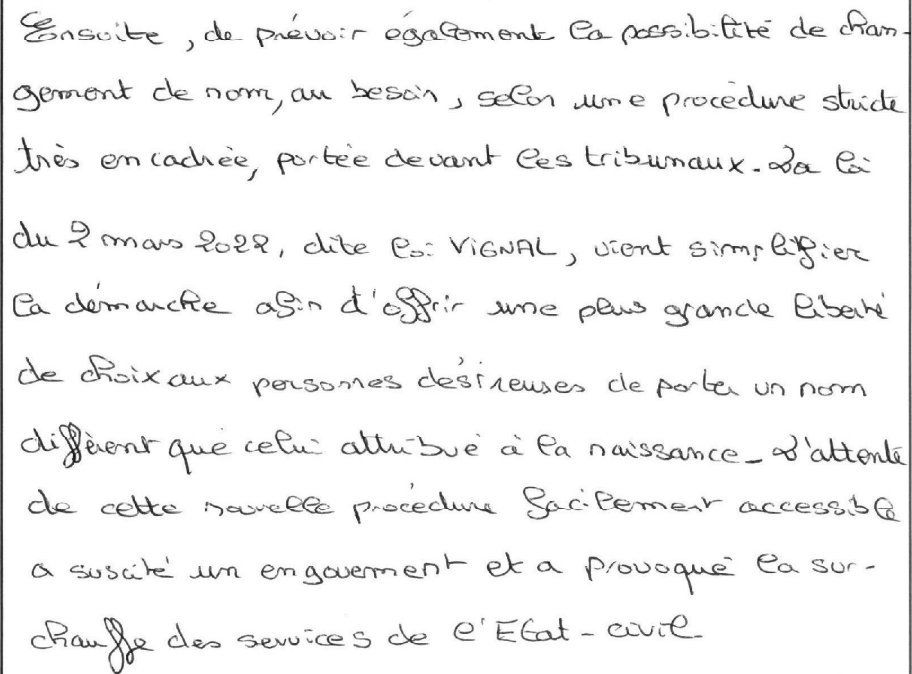 Ensuite, de prévoir également la possibilité de chan-
gement de nom, au besoin, selon une procédure stricte
très encadrée, portée devant les tribunaux. La loi
du 2 mars 2022, dite loi VIGNAL, vient simplifier
la démarche afin d'offrir une plus grande liberté
de choix aux personnes désireuses de porter un nom
différent que celui attribué à la naissance. L'attente
de cette nouvelle procédure facilement accessible
a suscité un engouement et a provoqué la sur-
chauffe des services de l'Etat-civil.